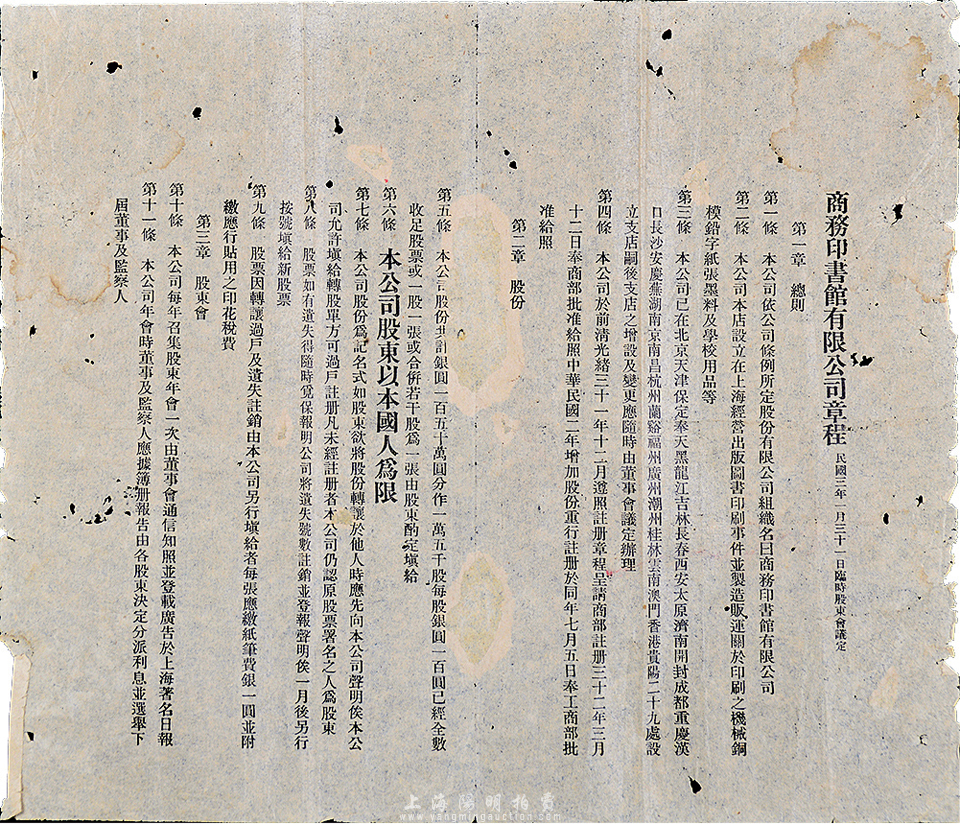 商務印書館有限公司章程 民國三年一月三十一日臨時股東會議定
第一章 總則
第一條 本公司依公司條例所定股份有限公司組織名曰商務印書館有限公司
第二條 本公司本店設立在上海經營出版圖書印刷事件並製造販運關於印刷之機械銅
模鉛字紙張墨料及學校用品等
第三條 本公司已在北京天津保定奉天黑龍江吉林長春西安太原濟南開封成都重慶漢
口長沙安慶蕪湖南京南昌杭州蘭谿福州廣州潮州桂林雲南澳門香港貴陽二十九處設
立支店嗣後支店之增設及變更應隨時由董事會議定辦理
第四條 本公司於前清光緒三十一年十二月遵照註册章程呈請商部註册三十二年三月
十二日奉商部批准給照中華民國二年增加股份重行註册於同年七月五日奉工商部批
准給照
第二章 股份
第五條 本公司股份共計銀圓一百五十萬圓分作一萬五千股每股銀圓一百圓已經全數
收足股票或一股一張或合併若干股爲一張由股東酌定塡給
第六條 本公司股東以本國人爲限
第七條 本公司股份爲記名式如股東欲將股份轉讓於他人時應先向本公司聲明俟本公
司允許塡給轉股單方可過戶註册凡未經註册者本公司仍認原股票署名之人爲股東
第八條 股票如有遺失得隨時覓保報明公司將遺失號數註銷並登報聲明俟一月後另行
按號塡給新股票
第九條 股票因轉讓過戶及遺失註銷由本公司另行塡給者每張應繳紙筆費銀一圓並附
繳應行貼用之印花稅費
第三章 股東會
第十條 本公司每年召集股東年會一次由董事會通信知照並登載廣告於上海著名日報
第十一條 本公司年會時董事及監察人應據簿册報告由各股東決定分派利息並選舉下
屆董事及監察人
上海陽明拍賣
www.yangmingauction.com